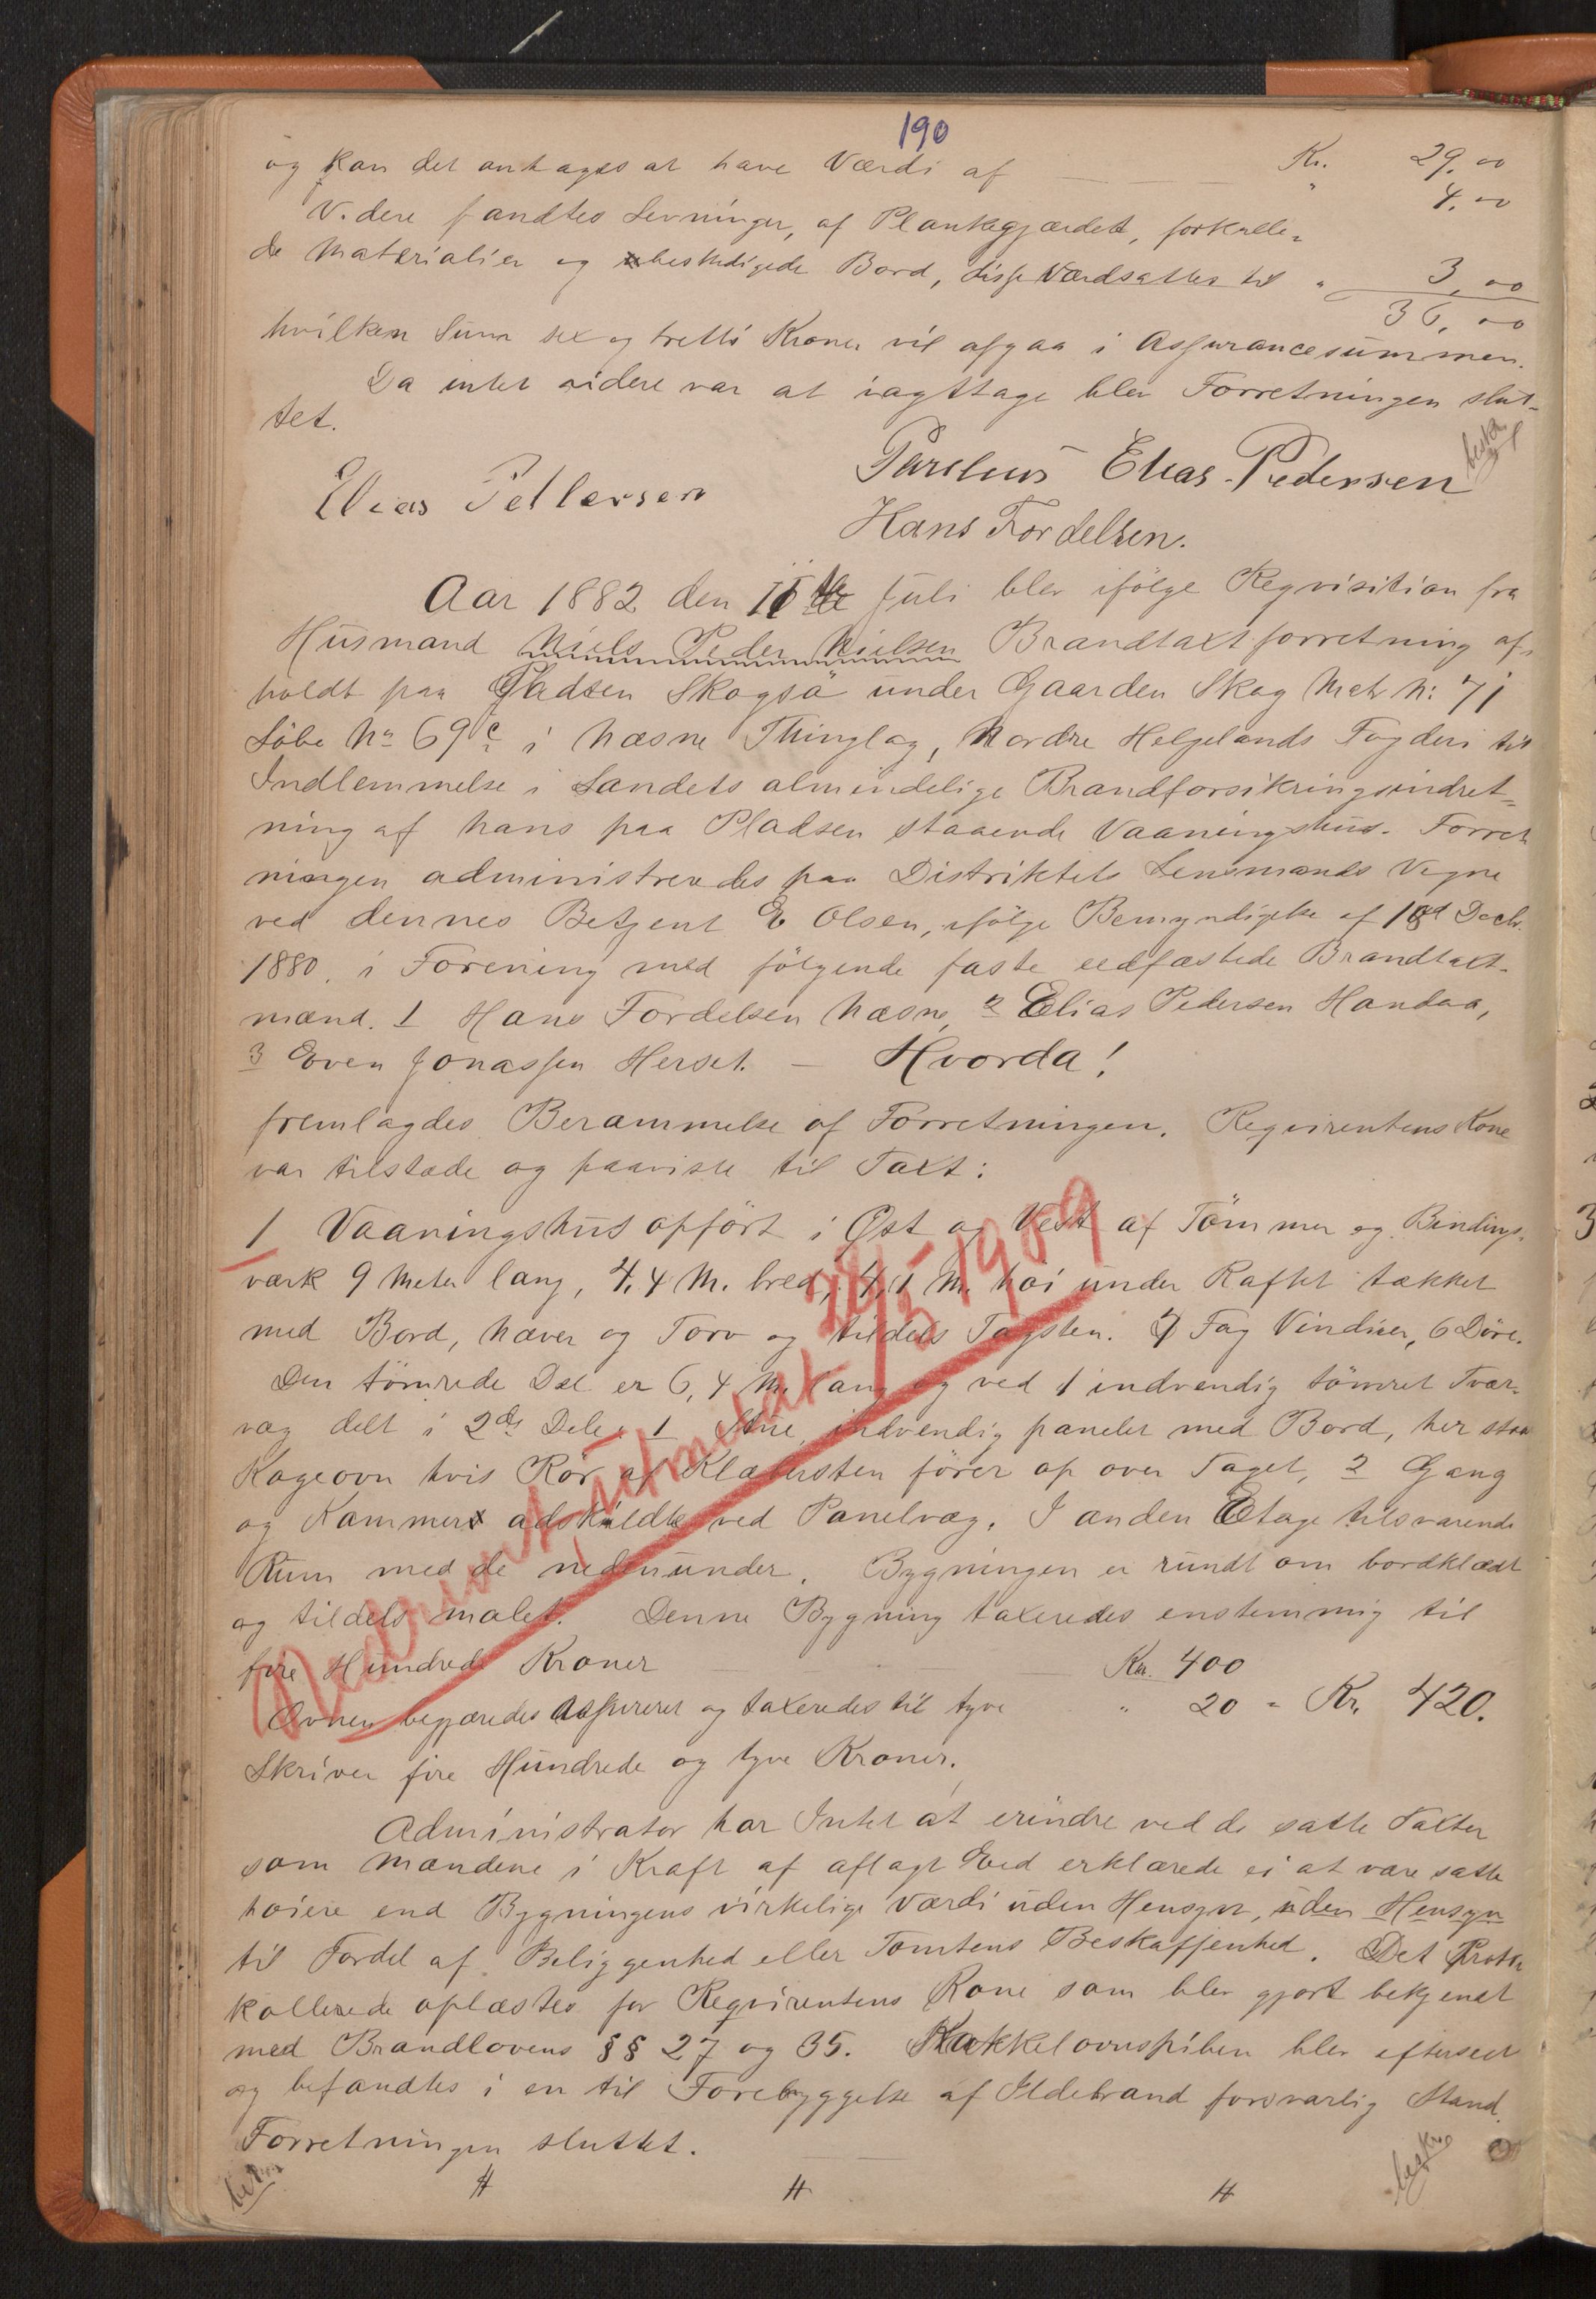 190
og kan det antages at have Værdi af Kr. 29.00
" 4.00
Videre fandtes Levninger, af Plankegjærdet, forkulle=
de Materialier og ubeskadigede Bord, disse Værdsattes til " 3.00
36.00
hvilken Sum sex og tretti Kroner vil afgaa i Assurancesummen.
Da intet videre var at iagttage blev Forretningen slut=
tet.
Elias Pettersen Elias Pedersen
Hans Tordelsen.
Aar 1882 den Juli blev ifölge Reqvisition fra
Husmand Niels Peder Nielsen Brandtaxtforretning af=
holdt paa Pladsen Skogsö under Gaarden Skog Matr N: 71
Löbe No 69c i Næsne Thinglag, Nordre Helgelands Fogderi til
Indlemmelse i Landets almindelige Brandforsikringsindret=
ning af hans paa Pladsen staaende Vaaningshus. Forret
ningen administreredes paa Distriktets Lensmands Vegne
ved dennes Betjent E Olsen, ifölge Bemyndigelse af 18d Decbr
1880, i Forening med fölgende faste eedfæstede Brandtaxt-
mænd. 1 Hans Tordelsen Næsne, 2 Elias Pedersen Handaa,
3 Even Jonassen Herset. — Hvorda!
fremlagdes Berammelse af Forretningen. Reqvirentens Kone
var tilstede og paaviste til Taxt:
1 Vaaningshus opfört i Öst og Vest af Tömmer og Bindings-
værk 9 Meter lang, 4,4 M. bred, 4,1 M. höi under Raftet tækket
med Bord, Næver og Torv og tildels Tagsten. 7 Fag Vinduer, 6 Döre.
Den tömrede Del er 6,4 M. lang og ved 1 indvendig tömret Tvær-
væg delt i 2de Dele: 1 Stue, indvendig panelet med Bord, her staar
Kogeovn hvis Rör af Klæbersten förer op over Taget, 2 Gang
og Kammer adskildte ved Panelvæg. I anden Etage tilsvarende
Rum med de nedenunder. Bygningen er rundt om bordklædt
og tildels malet. Denne Bygning taxeredes enstemmig til
fire Hundrede Kroner Kr. 400
Ovnen begjæredes Assureret og taxeredes til tyve " 20 = Kr. 420.
Skriver fire Hundrede og tyve Kroner.
Administrator har Intet at erindre ved de satte Taxter
som Mændene i Kraft af aflagt Eed erklærede ei at være satte
höiere end Bygningens virkelige Værdi uden Hensyn, uden Hensyn
til Fordel af Beliggenhed eller Tomtens Beskaffenhed. Det Proto
kollerede oplæstes for Reqvirentens Kone som blev gjort bekjendt
med Brandlovens §§ 27 og 35. Kakkelovnspiben blev efterseet
og befandtes i en til Forebyggelse af Ildebrand forsvarlig Stand.
Forretningen sluttet.
H H H